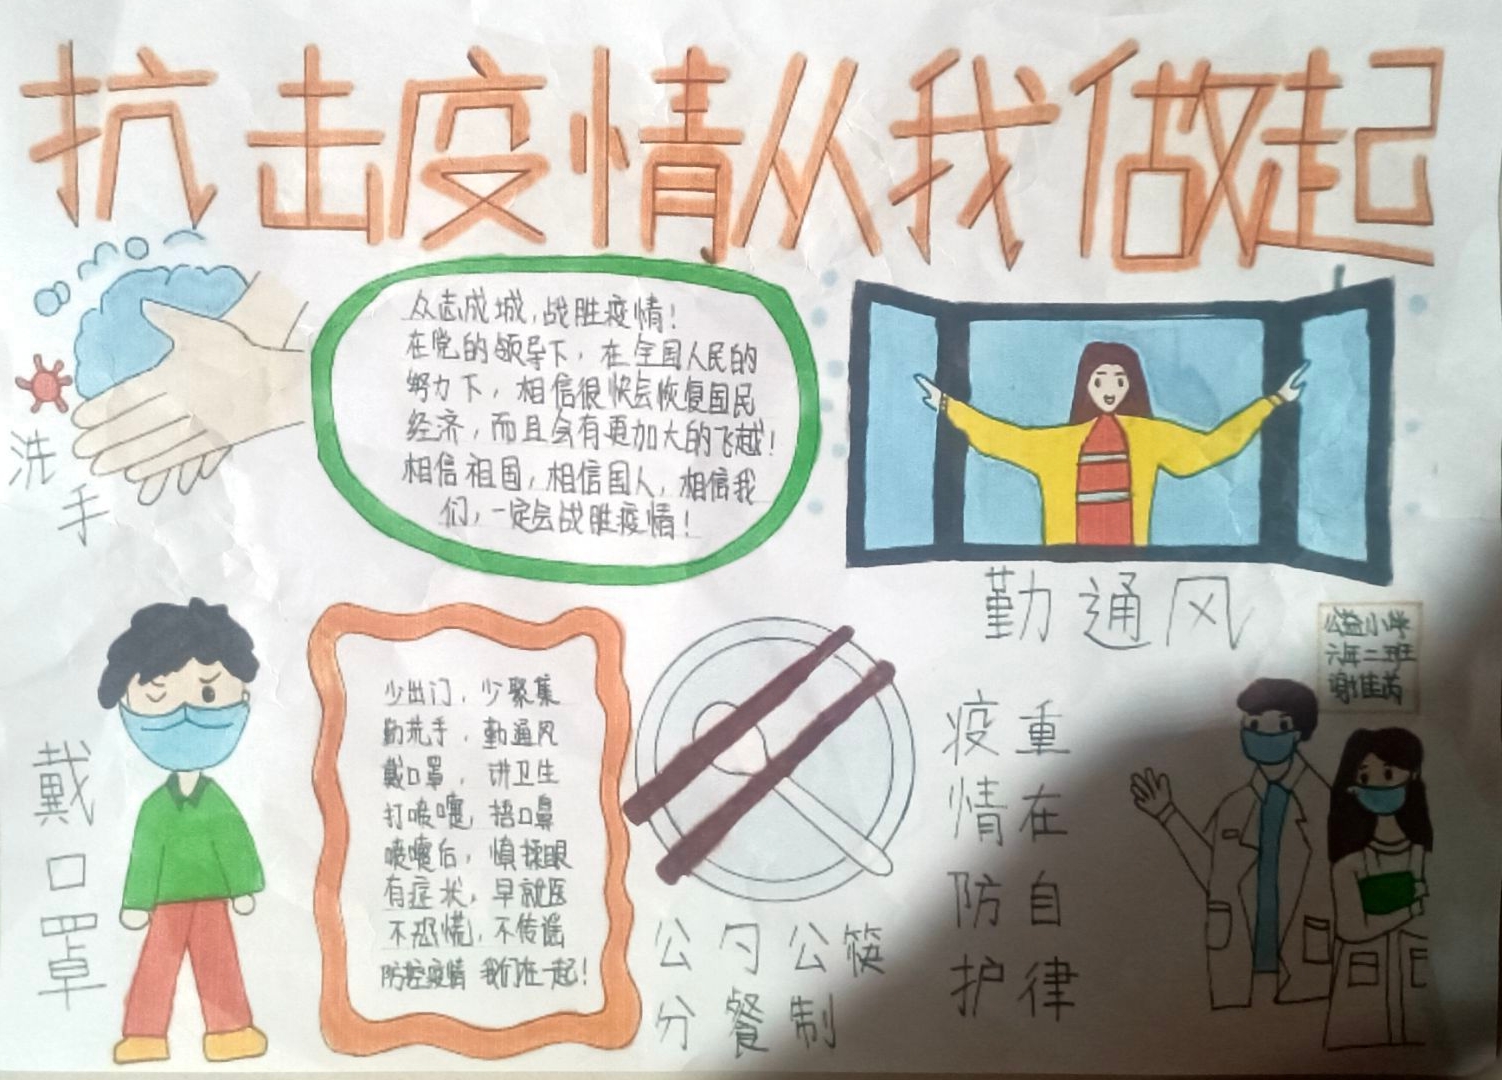 抗击疫情从我做起
众志成城,战胜疫情!
在党的领导下,在全国人民的
努力下,相信很快会恢复国民
经济,而且会有更加大的飞越!
相信祖国,相信国人,相信我
们,一定会战胜疫情!
洗手
勤通风
公益小学
六年二班
谢佳芮
戴口罩
少出门,少聚集
勤洗手,勤通风
戴口罩,讲卫生
打喷嚏,捂口鼻
喷嚏后,慎揉眼
有症状,早就医
不恐慌,不传谣
防控疫情 我们在一起!
公勺公筷
分餐制
疫情防护
重在自律